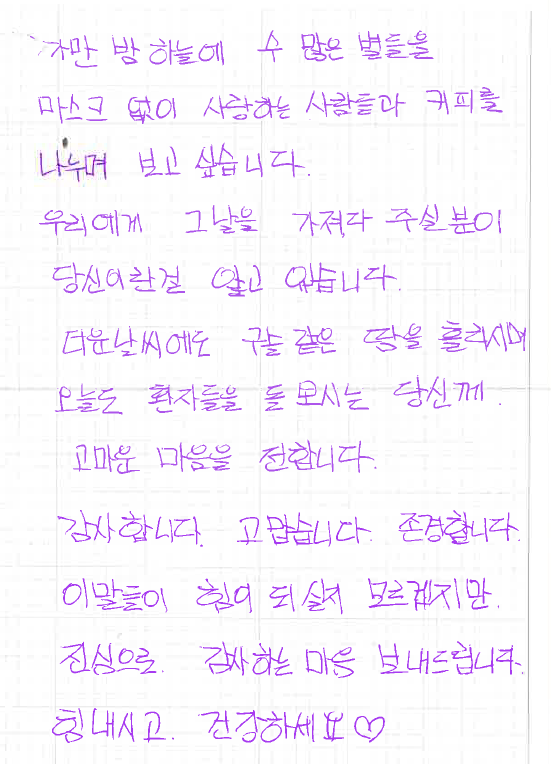 가만 밤 하늘에 수 많은 별들을
마스크 없이 사랑하는 사람들과 커피를
나누며 보고 싶습니다.
우리에게 그날을 가져다 주실분이
당신이란걸 알고 있습니다.
더운날씨에도 구슬 같은 땀을 흘리시며
오늘도 환자들을 돌보시는 당신께.
고마운 마음을 전합니다.
감사합니다. 고맙습니다. 존경합니다.
이말들이 힘이 되실지 모르겠지만.
진심으로. 감사하는 마음 보내드립니다.
힘내시고. 건강하세요♡